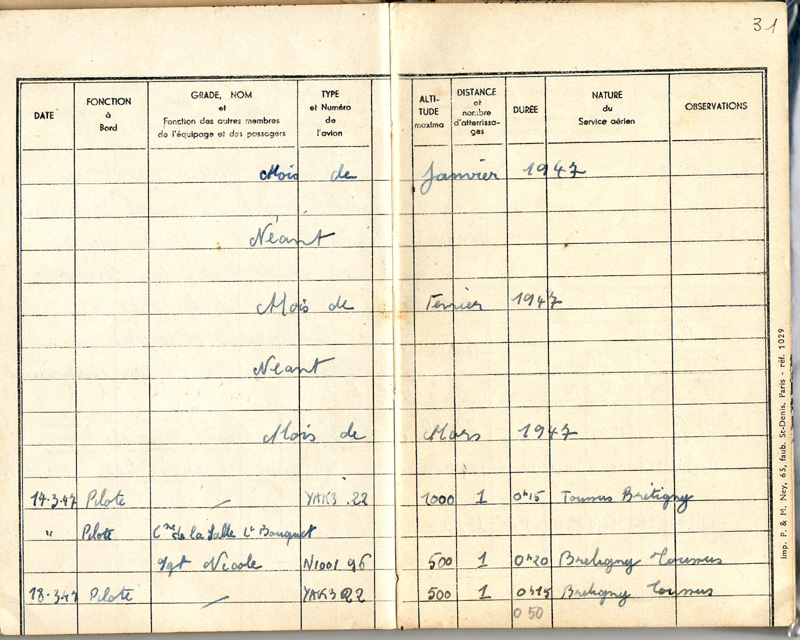 31
DATE
FONCTION
à
Bord
GRADE, NOM
et
Fonction des autres membres
de l'équipage et des passagers
TYPE
et Numéro
de
l'avion
ALTI-
TUDE
maxima
DISTANCE
et
nombre
d'atterrissa-
ges
DURÉE
NATURE
du
Service aérien
OBSERVATIONS
Mois de Janvier 1947
Néant
Mois de Fevrier 1947
Néant
Mois de Mars 1947
Pilote YAK3 22 1000 1 0h15 Toussus Brétigny
" Pilote Cne de la Salle Lt Bouquet
Sgt Nicole N1001 96 500 1 0h20 Bretigny Toussus
18.3.47 Pilote YAK3 22 500 1 0h15 Bretigny Toussus
0 50
Imp. P. & M. Ney, 65, faub. St-Denis, Paris - réf. 1029